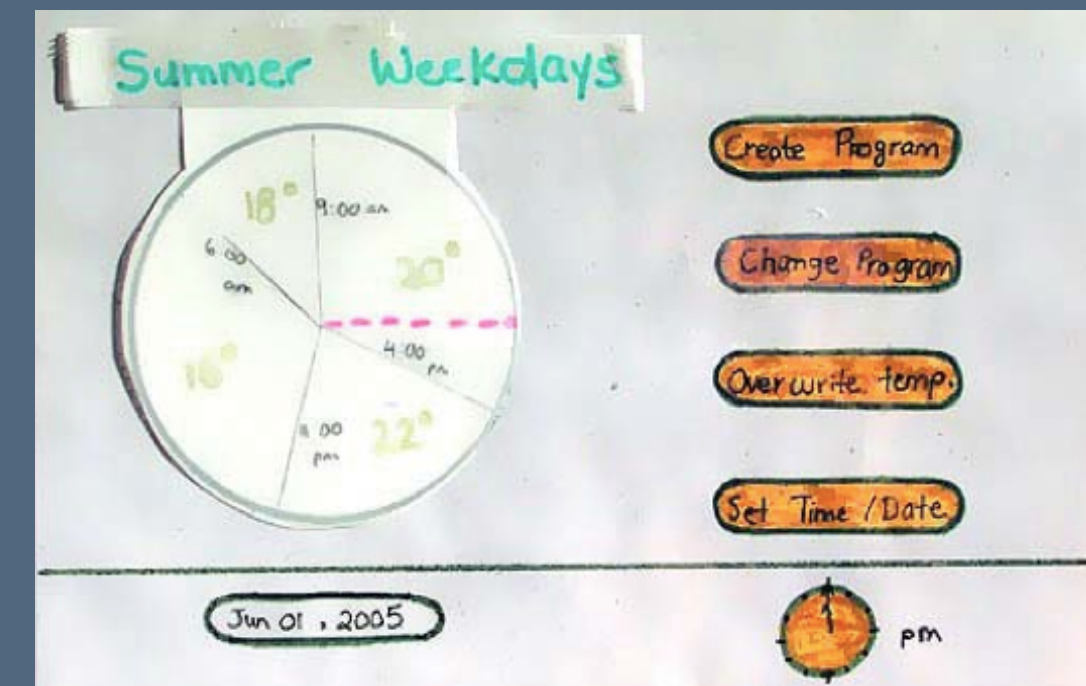 Summer Weekdays
18°
9:00 am
6:00
am
20°
4:00
pm
16°
22°
11:00
pm
Create Program
Change Program
Overwrite temp.
Set Time / Date
Jun 01, 2005
pm